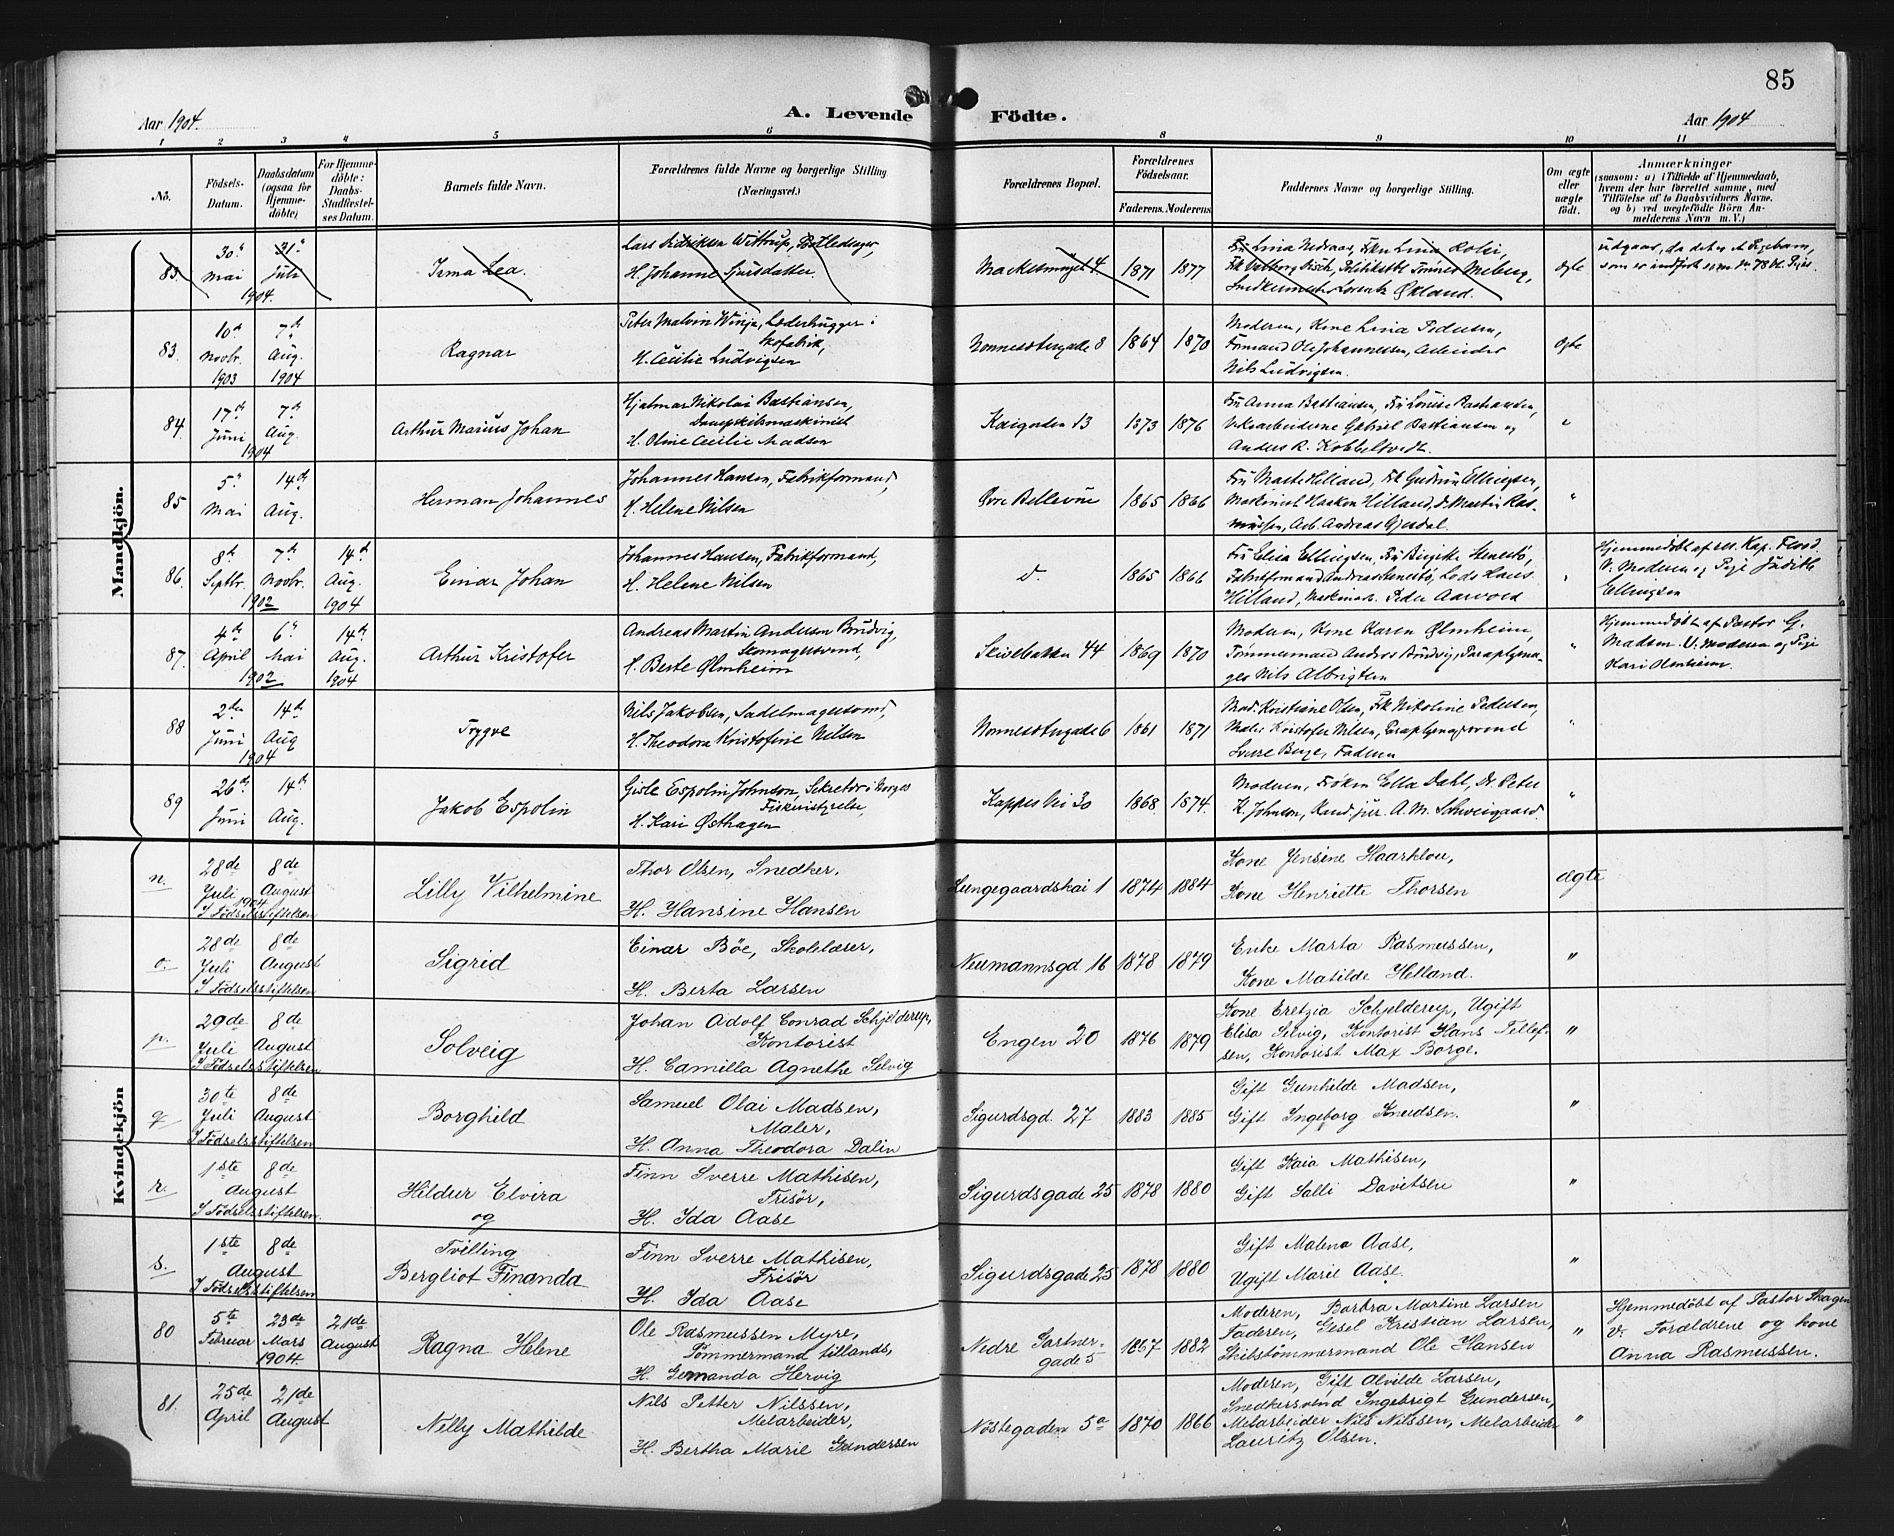 85
Aar 1904.
A. Levende Födte.
Aar 1904
1 2 3 4 5 6 8 9 10 11
No.
Födsels-
Datum.
Daabsdatum
(ogsaa for
Hjemme-
döbte)
For Hjemme-
döbte:
Daabs-
Stadfæstel-
ses Datum.
Barnets fulde Navn.
Forældrenes fulde Navne og borgerlige Stilling
(Næringsvei.)
Forældrenes Bopæl.
Forældrenes
Födselsaar.
Faderens. Moderens.
Faddernes Navne og borgerlige Stilling.
Om ægte
eller
uægte
födt.
Anmærkninger
(saasom: a) i Tilfælde af Hjemmedaab,
hvem der har forrettet samme, med
Tilföielse af to Daabsvidners Navne.
og b) ved uægtefödte Börn An-
melderens Navn m. V.)
Mandkjön.
83.
30'
Mai
31'
Juli
1904.
Irma Lea.
Lars Didriksen Wittrup,
H. Johanne Sjursdatter.
4
1871
1877
Lorentz Økland.
Ægte
udgaar, da det er et Pigebarn,
som er indført som Nr. 78 bl. Pige.
83.
10de
Novbr.
1903
7de
Aug.
1904
Ragnar
Peter Malvin Winje, Læderhugger i
Skofabrik,
H. Cecilie Ludvigsen
Nonnestergade 8
1864
1870
Moderen, Kone Lina Pedersen,
Formand Ole Johannessen, Arbeider
Nils Ludvigsen.
Ægte
84.
17de
Juni
7de
Aug.
1904
Arthur Marius Johan
Hjalmar Nikolai Bastiansen,
Dampskibsmaskinist
H. Oline Cecilie Madsen
Kaigaden 13
1873
1876
Fru Anna Bastiansen, Fru Louise Bastiansen,
Verksarbeiderne Gabriel Bastiansen og
Anders R. Kobbeltvedt.
"
85
5'
Mai
14de
Aug.
Herman Johannes
Johannes Hansen, Fabrikformand,
H. Helene Nilsen
Øvre Bellevue
1865
1866
Fru Marte Hilland, Frk Gudrun Ellingsen,
Maskinist Haakon Hilland, d. Martin Ras-
mussen, Arb. Andreas Gjesdal.
"
86.
8de
Septbr.
7de
Novbr.
1902
14de
Aug.
1904
Einar Johan
Johannes Hansen, Fabrikformand,
H. Helene Nilsen
d.
1865
1866
Fru Elisa Ellingsen, Fru Birgitte Stenestø,
Fabrikformand Andreas Stenestø, Lods Hans
Hilland, Maskinarb. Peder Aarvold
"
Hjemmedøbt af res. Kap. Flood
V. Moderen og Pige Judith
Ellingsen
87.
4de
April
6'
Mai
1902
14de
Aug.
1904
Arthur Kristofer
Andreas Martin Andersen Brudvig,
Skomagersvend,
H. Berte Ølmheim
Skivebakken 44
1869
1870
Moderen, Kone Karen Ølmheim,
Tømmermand Andres Brudvig, Paraplyma-
ger Nils Albrigtsen
"
Hjemmedøbt af Pastor G.
Madsen. V. Moderen og Pige
Kari Olmheim.
88
2den
Juni
14de
Aug
1904
Trygve
Nils Jakobsen, Sadelmagersvend,
H. Theodora Kristofine Nilsen
Nonnestergade 6
1861
1871
Mad. Kristiane Olsen, Frk Nikoline Pedersen,
Maler Kristofer Nilsen, Paraplymagersvend
Sverre Berge, Faderen
"
89
26de
Juni
14de
Aug.
Jakob Espolin
Gisle Espolin Johnson, Sekretær i Norges
Fiskeristyrelse,
H. Kari Østhagen
Kappes Vei 30
1868.
1874.
Moderen, Frøken Ella Dahl, Dr. Peter
K. Johnson, Kand. jur. A. M. Schweigaard.
"
Kvindekjön
n.
28de
Juli
8de
August
1904
I Födselsstiftelsen
Lilly Vilhelmine
Thor Olsen, Snedker.
H. Hansine Hansen
Lungegaardskai 1
1874
1884
Kone Jensine Haarklou,
Kone Henriette Thorsen
Ægte
o.
28de
Juli
8de
August
I Födselsstiftelsen
Sigrid
Einar Böe, Skolelærer,
H. Berta Larsen
Neumannsgd 16
1878
1879
Enke Marta Rasmussen,
Kone Matilde Hetland.
"
p.
29de
Juli
8de
August
I Födselsstiftelsen
Solveig
Johan Adolf Conrad Schjelderup,
Kontorist
H. Camilla Agnethe Selvig
Engen 20
1876
1879
Kone Eretzia Schjelderup, Ugift
Elisa Selvig, Kontorist Hans Tellef-
sen, Kontorist Max Borge.
"
q.
30te
Juli
8de
August
I Födselsstiftelsen
Borghild
Samuel Olai Madsen,
Maler,
H. Anna Theodora Dalin
Sigurdsgd. 27
1883
1885
Gift Gunhilde Madsen,
Gift Ingeborg Knudsen.
"
r.
1ste
8de
August
I Födselsstiftelsen.
Hildur Elvira
og
Finn Sverre Mathisen,
Frisör,
H. Ida Aase
Sigurdsgade 25
1878
1880
Gift Kaia Mathisen,
Gift Salli Davitsen
"
s.
1ste
8de
August
I Födselsstiftelsen
Tvilling
Bergliot Finanda
Finn Sverre Mathisen,
Frisör
H. Ida Aase
Sigurdsgade 25
1878
1880
Gift Malena Aase,
Ugift Marie Aase.
"
80
5te
Februar
23de
Mars
1904.
21de
August
Ragna Helene
Ole Rasmussen Myre,
Tömmermand tillands,
H. Gemanda Hervig
Nedre Gartner-
gade 5
1867
1882
Moderen, Barbra Martine Larsen
Faderen, Gesel Kristian Larsen,
Skibstömmermand Ole Hansen
"
Hjemmedöbt af Pastor Skagen
v. Forældrene og kone
Anna Rasmussen.
81.
25de
April
21de
August
Nelly Mathilde
Nils Petter Nilssen,
Melarbeider,
H. Bertha Marie Gundersen
Nöstegaden 5a
1870
1866
Moderen, Gift Alvilde Larsen,
Snedkersvend Ingebrigt Gundersen,
Melarbeider Nils Nilssen, Melarbeider
Lauritz Olsen.
"